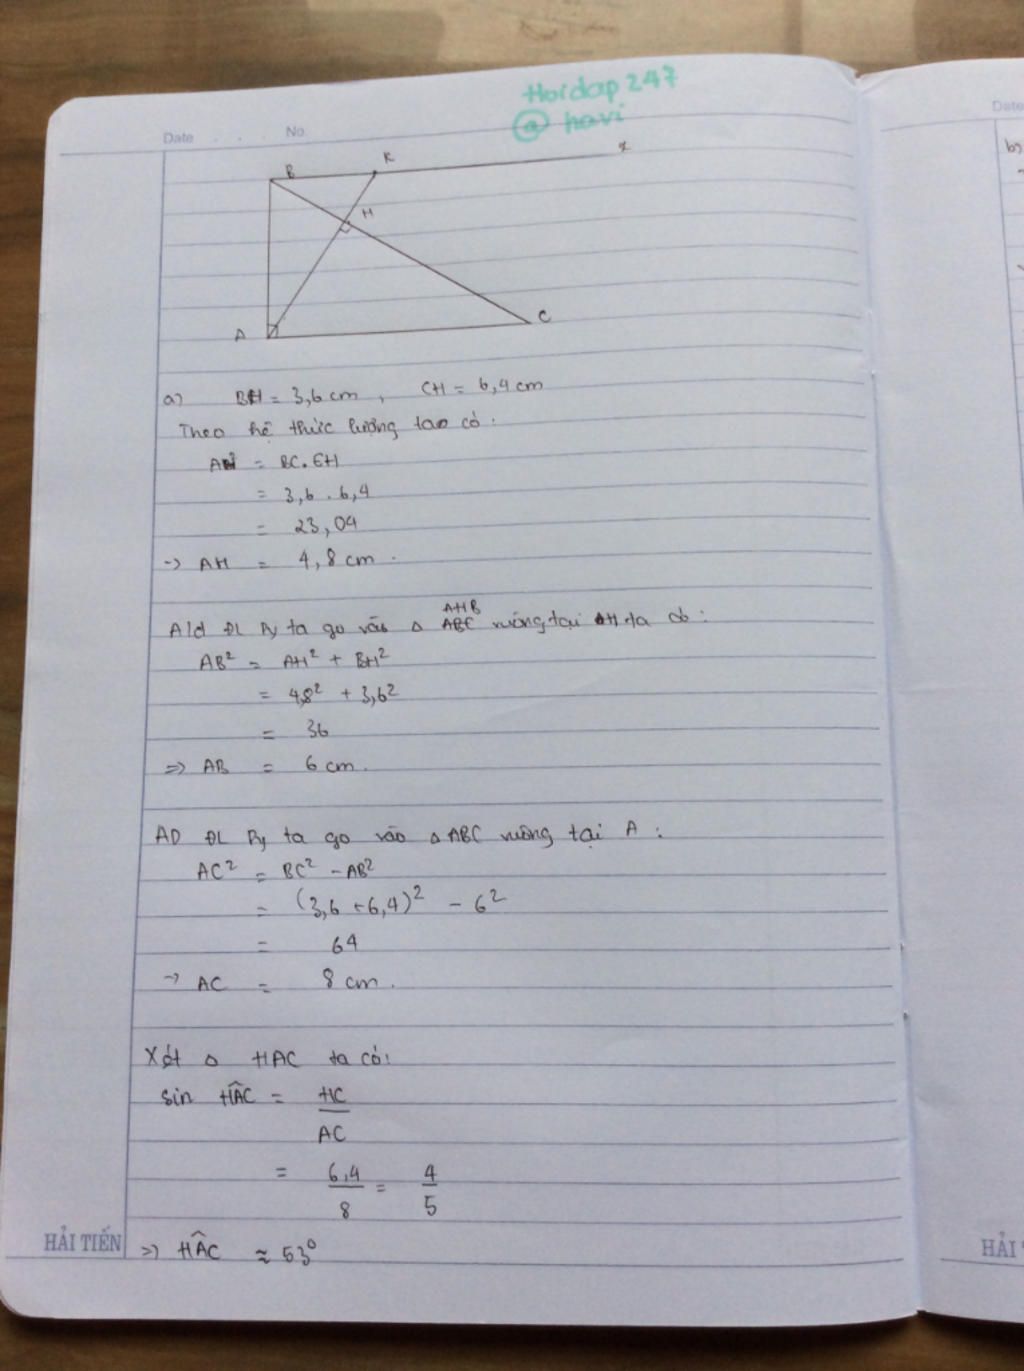 Hoidap 247
@ havi
Date . . . No.
Date
B K x
H
A C
b)
a) BH = 3,6 cm , CH = 6,4 cm
Theo hệ thức lượng ta có :
AH² = BC. CH
= 3,6 . 6,4
= 23,04
-> AH = 4,8 cm .
AHB
Ald ĐL Py ta go vào Δ ABC vuông tại H ta có :
AB² = AH² + BH²
= 4,8² + 3,6²
= 36
=> AB = 6 cm .
AD ĐL Py ta go vào Δ ABC vuông tại A :
AC² = BC² - AB²
= (3,6 + 6,4)² - 6²
= 64
-> AC = 8 cm .
Xét Δ HAC ta có:
sin HÂC = HC
AC
= 6,4 = 4
8 5
HẢI TIẾN
=> HÂC ≈ 53°
HẢI